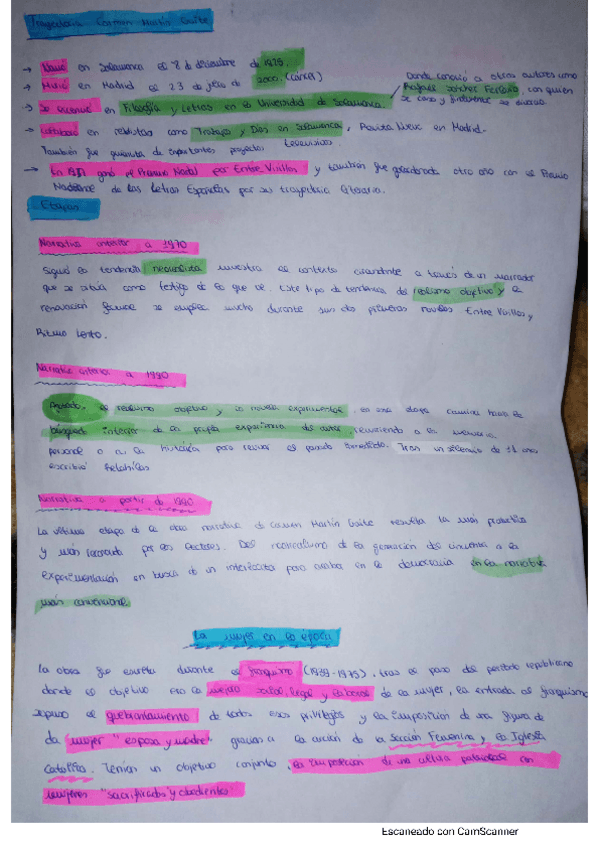 Trayectoria Carmen Martín Gaite
→ Nació en Salamanca el 8 de diciembre de 1925.
→ Murió en Madrid el 23 de julio de 2000. (cáncer)
Donde conoció a otros autores como
Rafael Sánchez Ferlosio, con quien
se casó y finalmente se divorció.
→ Se licenció en Filosofía y Letras en la Universidad de Salamanca.
→ Colaboró en revistas como Trabajos y Días en Salamanca, Revista Nueve en Madrid.
También fue guionista de importantes proyectos televisivos.
→ En ganó el Premio Nadal por Entre Visillos y también fue galardonada otro año con el Premio
Nacional de las Letras Españolas por su trayectoria literaria.
Etapas
Narrativa anterior a 1970
Siguió la tendencia neorrealista muestra el contexto circundante a través de un narrador
que se sitúa como testigo de lo que ve. Este tipo de tendencia del realismo objetivo y la
renovación formal se emplea mucho durante sus dos primeras novelas Entre Visillos y
Ritmo Lento.
Narrativa anterior a 1990
el realismo objetivo y la novela experimental. es una etapa camina hacia la
búsqueda interior de la propia experiencia del autor, recurriendo a la memoria
personal o a la histórica para revivir el pasado Tras un silencio de 11 años
escribió Retahílas
Narrativa a partir de 1990
La última etapa de la obra narrativa de Carmen Martín Gaite resulta la más prolífica
y más laureada por los lectores. Del neorrealismo de la generación del cincuenta a la
experimentación en busca de un interlocutor para acabar en la democracia en la narrativa
más convencional.
La mujer en la época
La obra fue escrita durante el franquismo (1939-1975), tras el paso del periodo republicano
donde el objetivo era la mejora social, legal y laboral de la mujer, la entrada al franquismo
supuso el quebrantamiento de todos esos privilegios y la imposición de una figura de
da mujer "esposa y madre" gracias a la acción de la Sección Femenina y la Iglesia
Católica. Tenían un objetivo conjunto, la imposición de una cultura patriarcal con
mujeres "sacrificadas y obedientes"
Escaneado con CamScanner